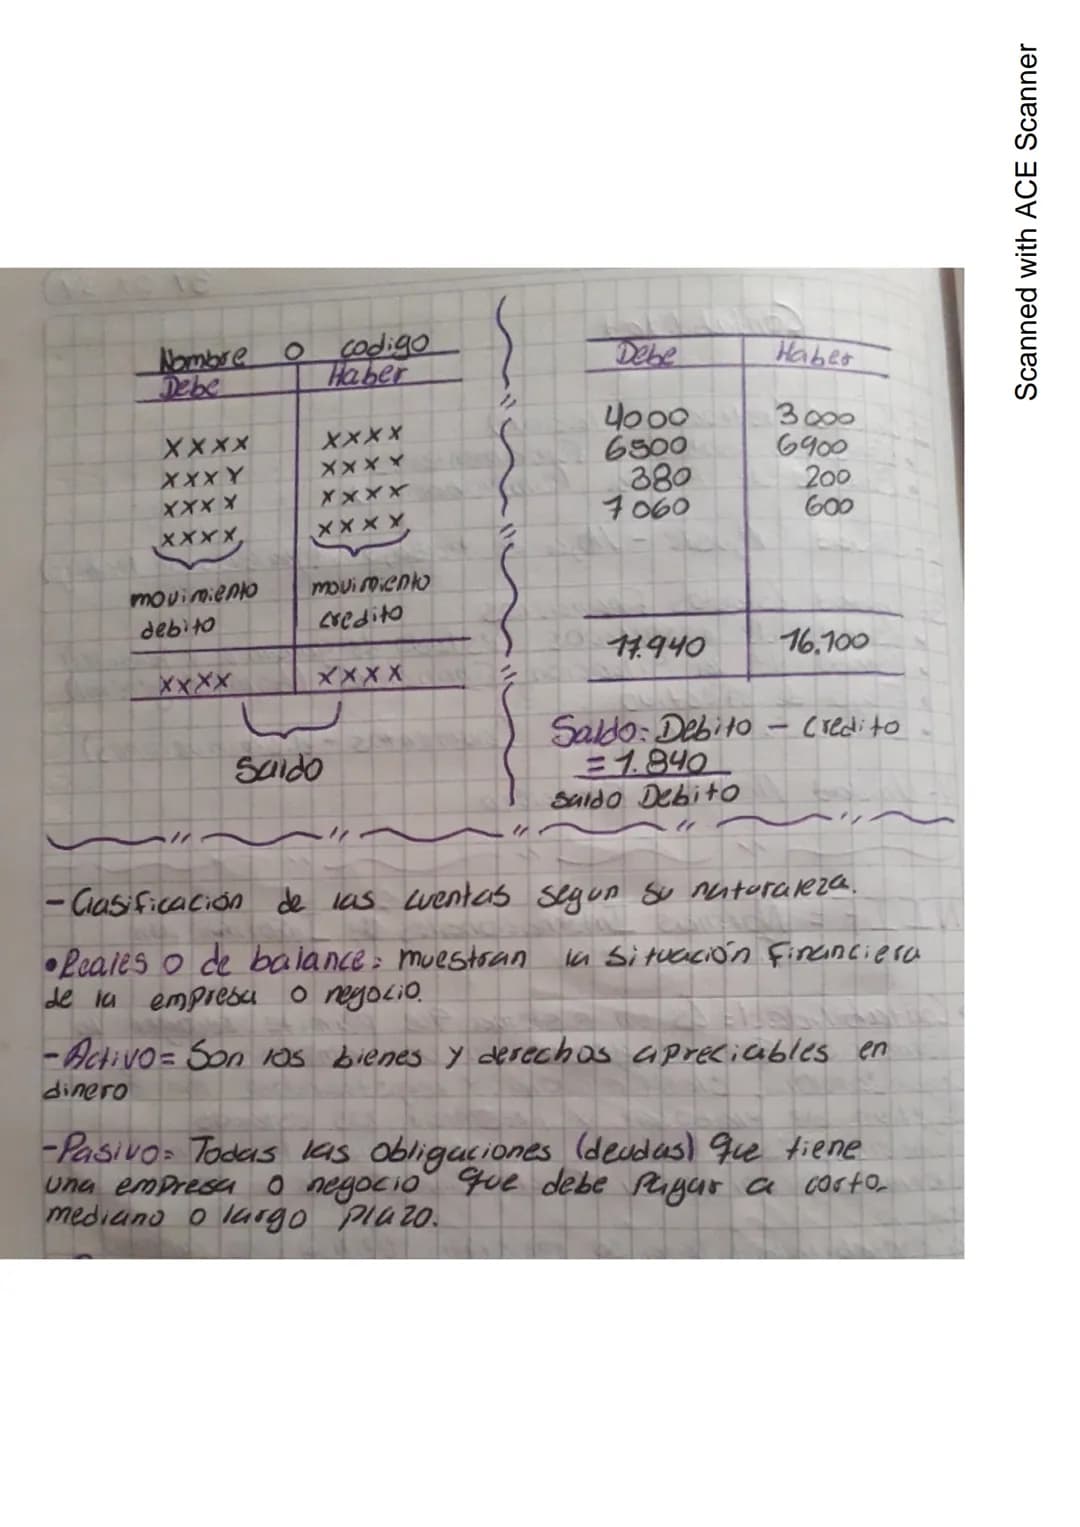 Scanned with ACE Scanner
Nombre o codigo
Debe Haber
xxxx xxxx
xxxx xxxx
xxxx xxxx
xxxx xxxx
movimiento movimiento
debito credito
xxxx xxxx
Saldo
Debe Haber
4000 3000
6500 6900
380 200
7060 600
17.940 16.100
Saldo: Debito - Credito
= 1.840
saldo Debito
- Clasificación de las cuentas segun su naturaleza.
• Reales o de balance: muestran la situación financiera
de la empresa o negocio.
- Activo = Son los bienes y derechos apreciables en
dinero
- Pasivo = Todas las obligaciones (deudas) que tiene
una empresa o negocio que debe pagar a corto
mediano o largo plazo.